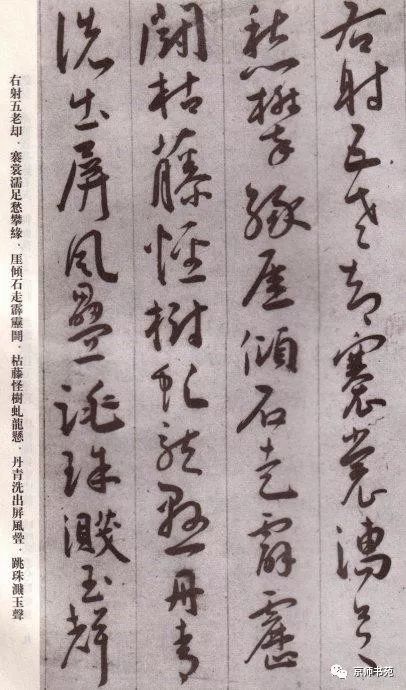 右射五老却褰裳濡足
愁攀緣厓傾石走霹靂
鬪枯藤怪樹虬龍懸丹青
洗出屏風疊跳珠濺玉聲
右射五老却．褰裳濡足愁攀緣．厓傾石走霹靂鬪．枯藤怪樹虬龍懸．丹青洗出屏風疊．跳珠濺玉聲
京师书苑